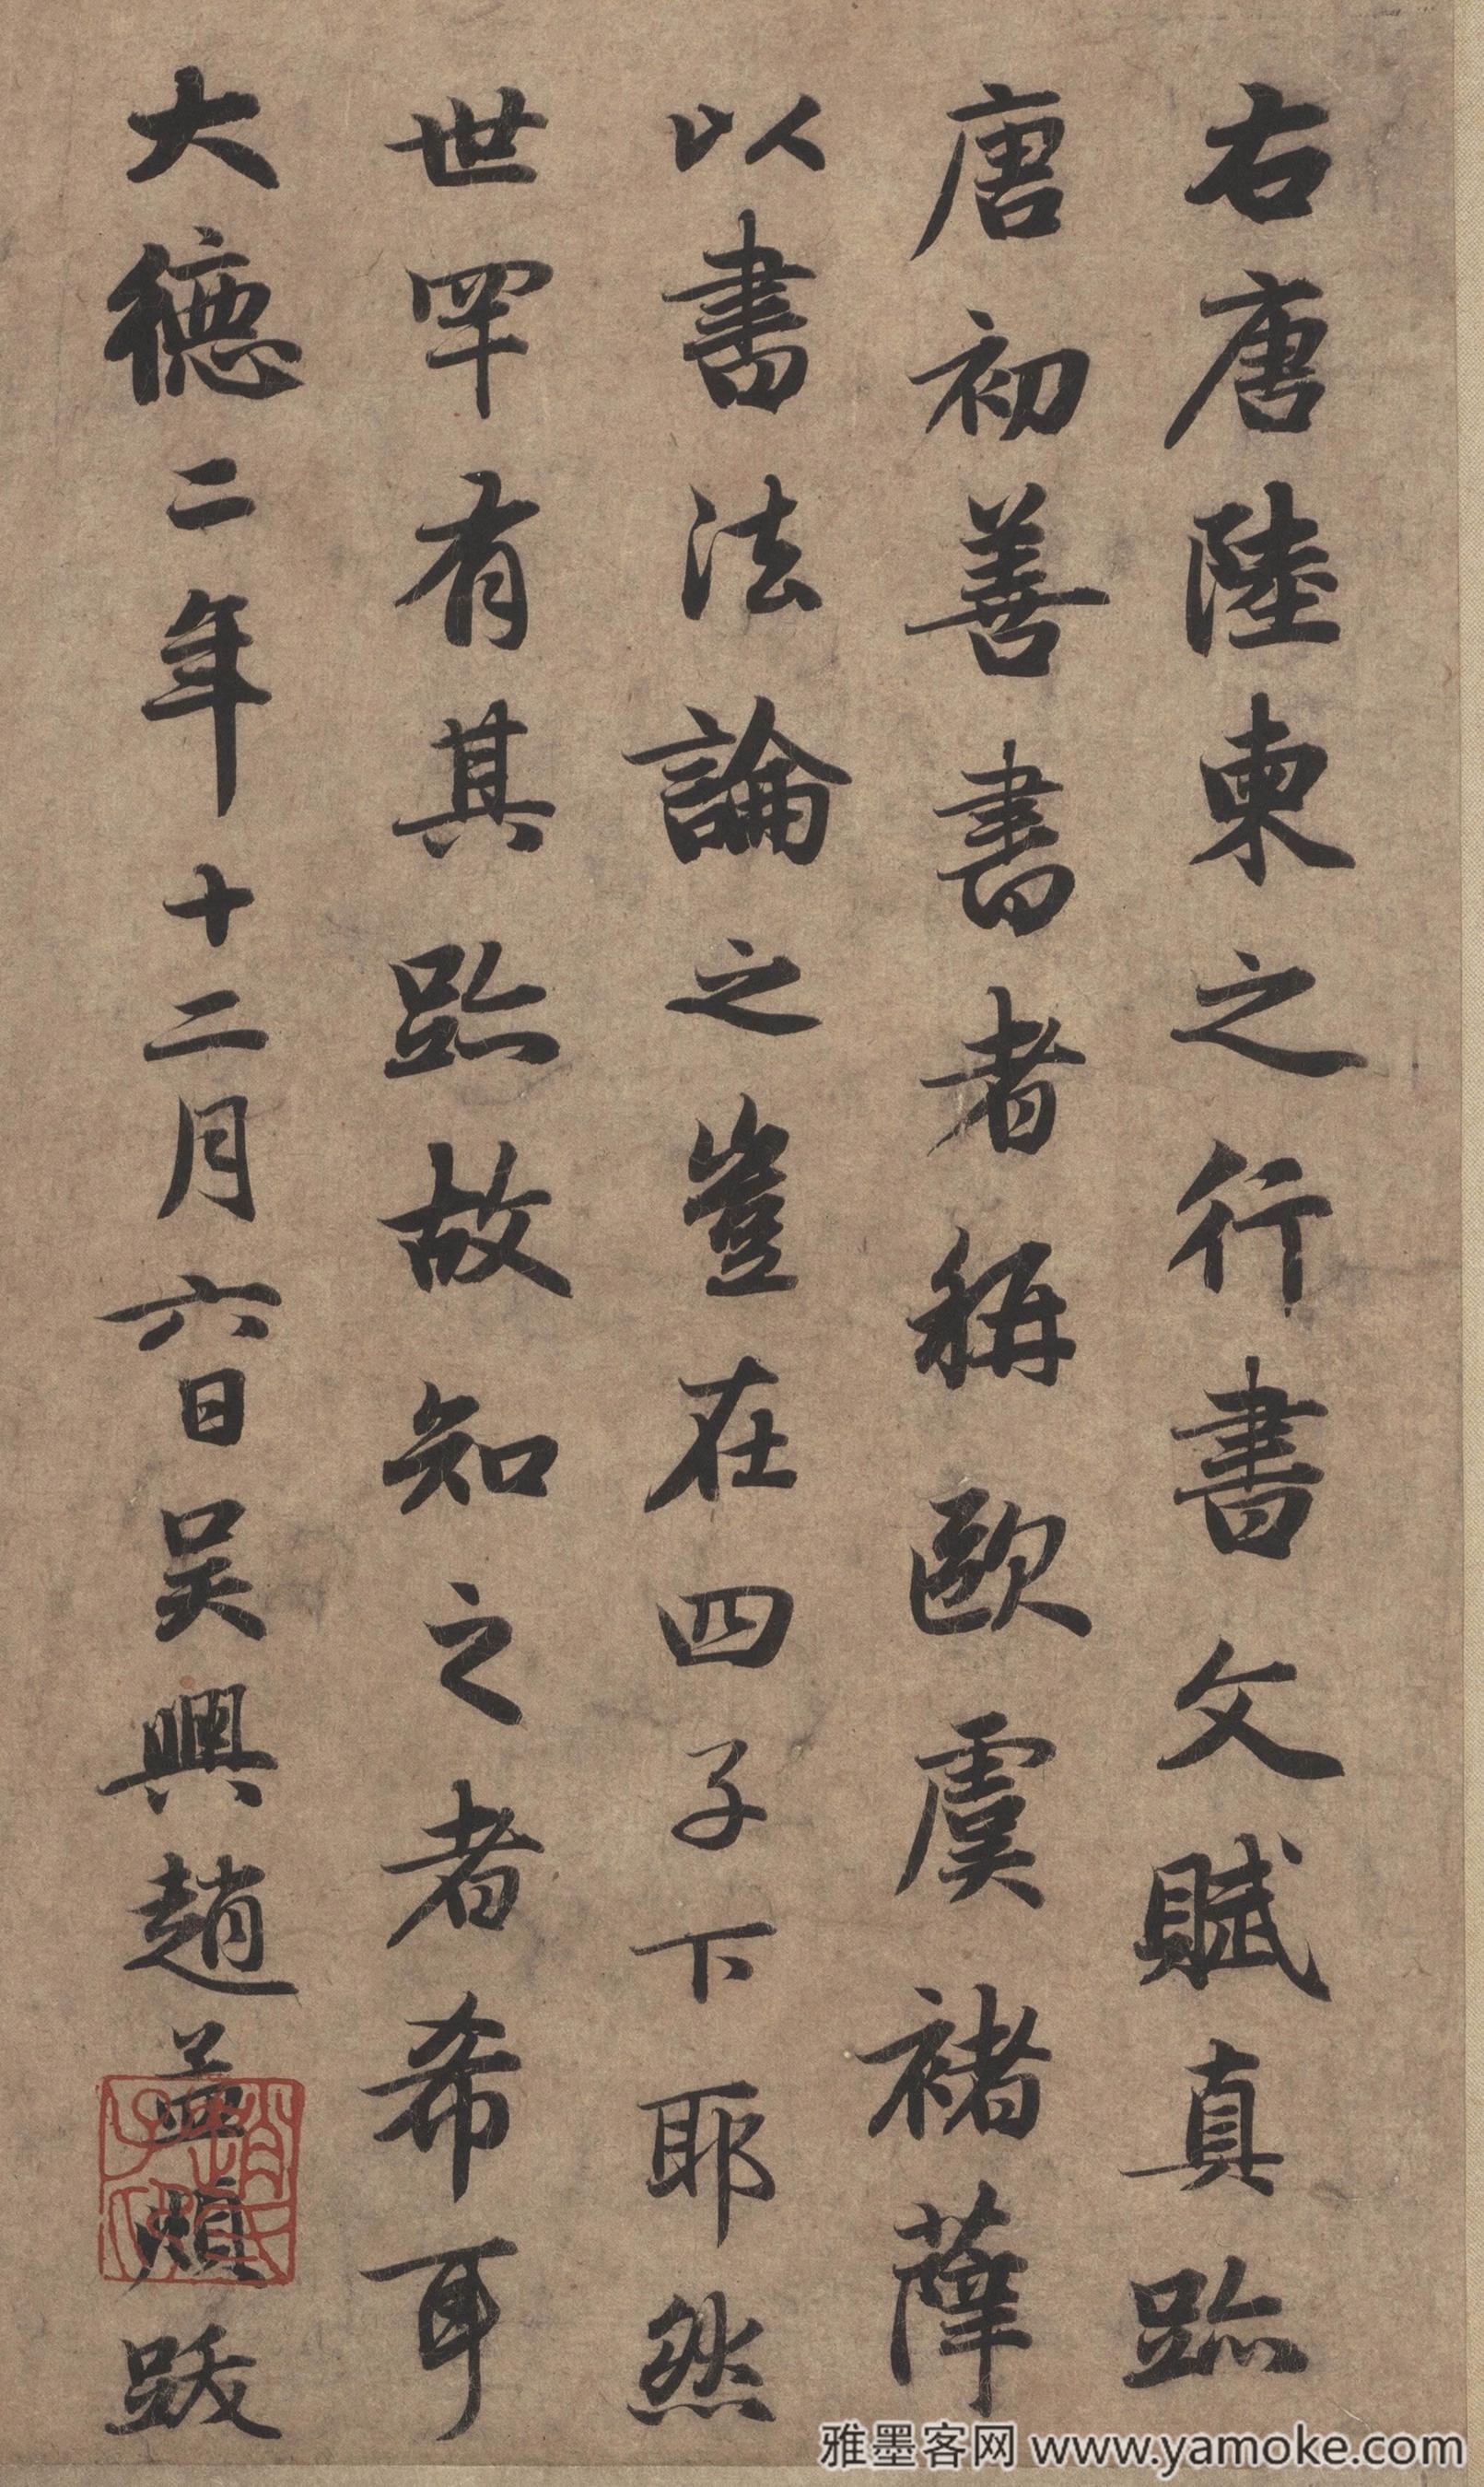 右唐陸柬之行書文賦真跡
唐初善書者稱歐虞褚薛
以書法論之豈在四子下耶然
世罕有其跡故知之者希耳
大德二年十二月六日吳興趙孟頫跋
趙氏子昂
雅墨客网 www.yamoke.com